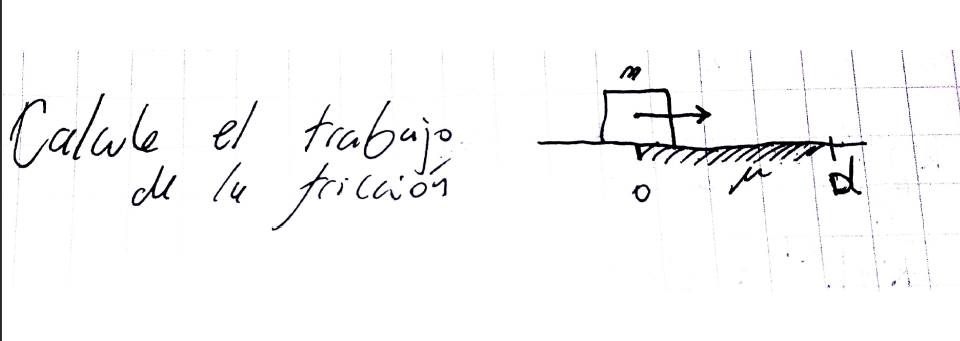 Calcule el trabajo
de la fricción
m
μ
0
d